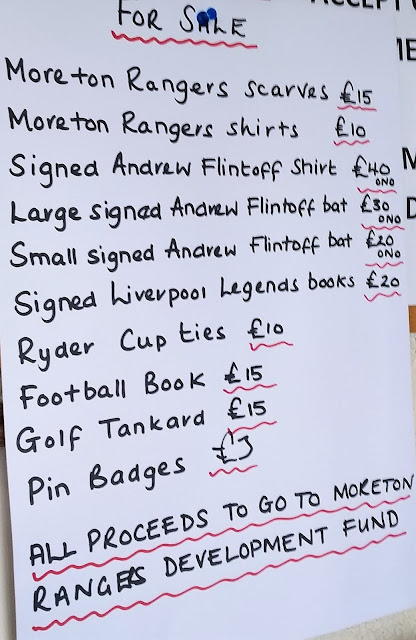 FOR SALE
Moreton Rangers scarves £15
Moreton Rangers shirts £10
Signed Andrew Flintoff Shirt £40 ONO
Large signed Andrew Flintoff bat £30 ONO
Small signed Andrew Flintoff bat £20 ONO
Signed Liverpool Legends books £20
Ryder Cup ties £10
Football Book £15
Golf Tankard £15
Pin Badges £3
ALL PROCEEDS TO GO TO MORETON
RANGERS DEVELOPMENT FUND